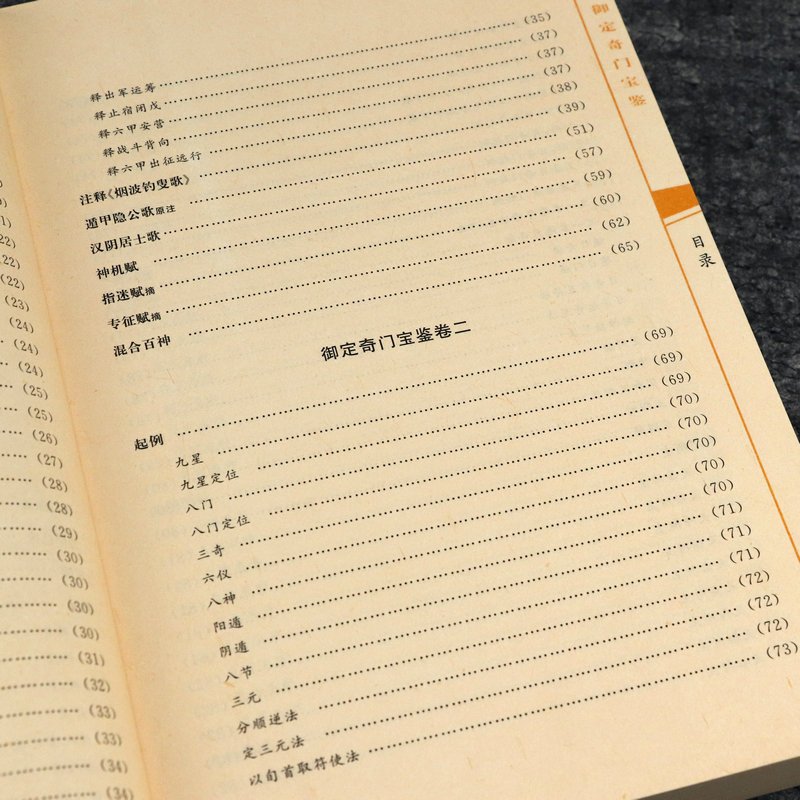 22)
(22)
(22)
(23)
(24)
(24)
(24)
(25)
(25)
(26)
(27)
(28)
(28)
(29)
(30)
(30)
(30)
(30)
(31)
(32)
(33)
(33)
(34)
(34)
释出军运筹 (35)
释止宿闭戊 (37)
释六甲安营 (37)
释战斗背向 (37)
释六甲出征远行 (38)
注释《烟波钓叟歌》 (39)
遁甲隐公歌原注 (51)
汉阴居士歌 (57)
神机赋 (59)
指迷赋摘 (60)
专征赋摘 (62)
混合百神 (65)
御定奇门宝鉴卷二
起例 (69)
九星 (69)
九星定位 (69)
八门 (70)
八门定位 (70)
三奇 (70)
六仪 (70)
八神 (70)
阳遁 (71)
阴遁 (71)
八节 (71)
三元 (72)
分顺逆法 (72)
定三元法 (72)
以旬首取符使法 (73)
御定奇门宝鉴
目录